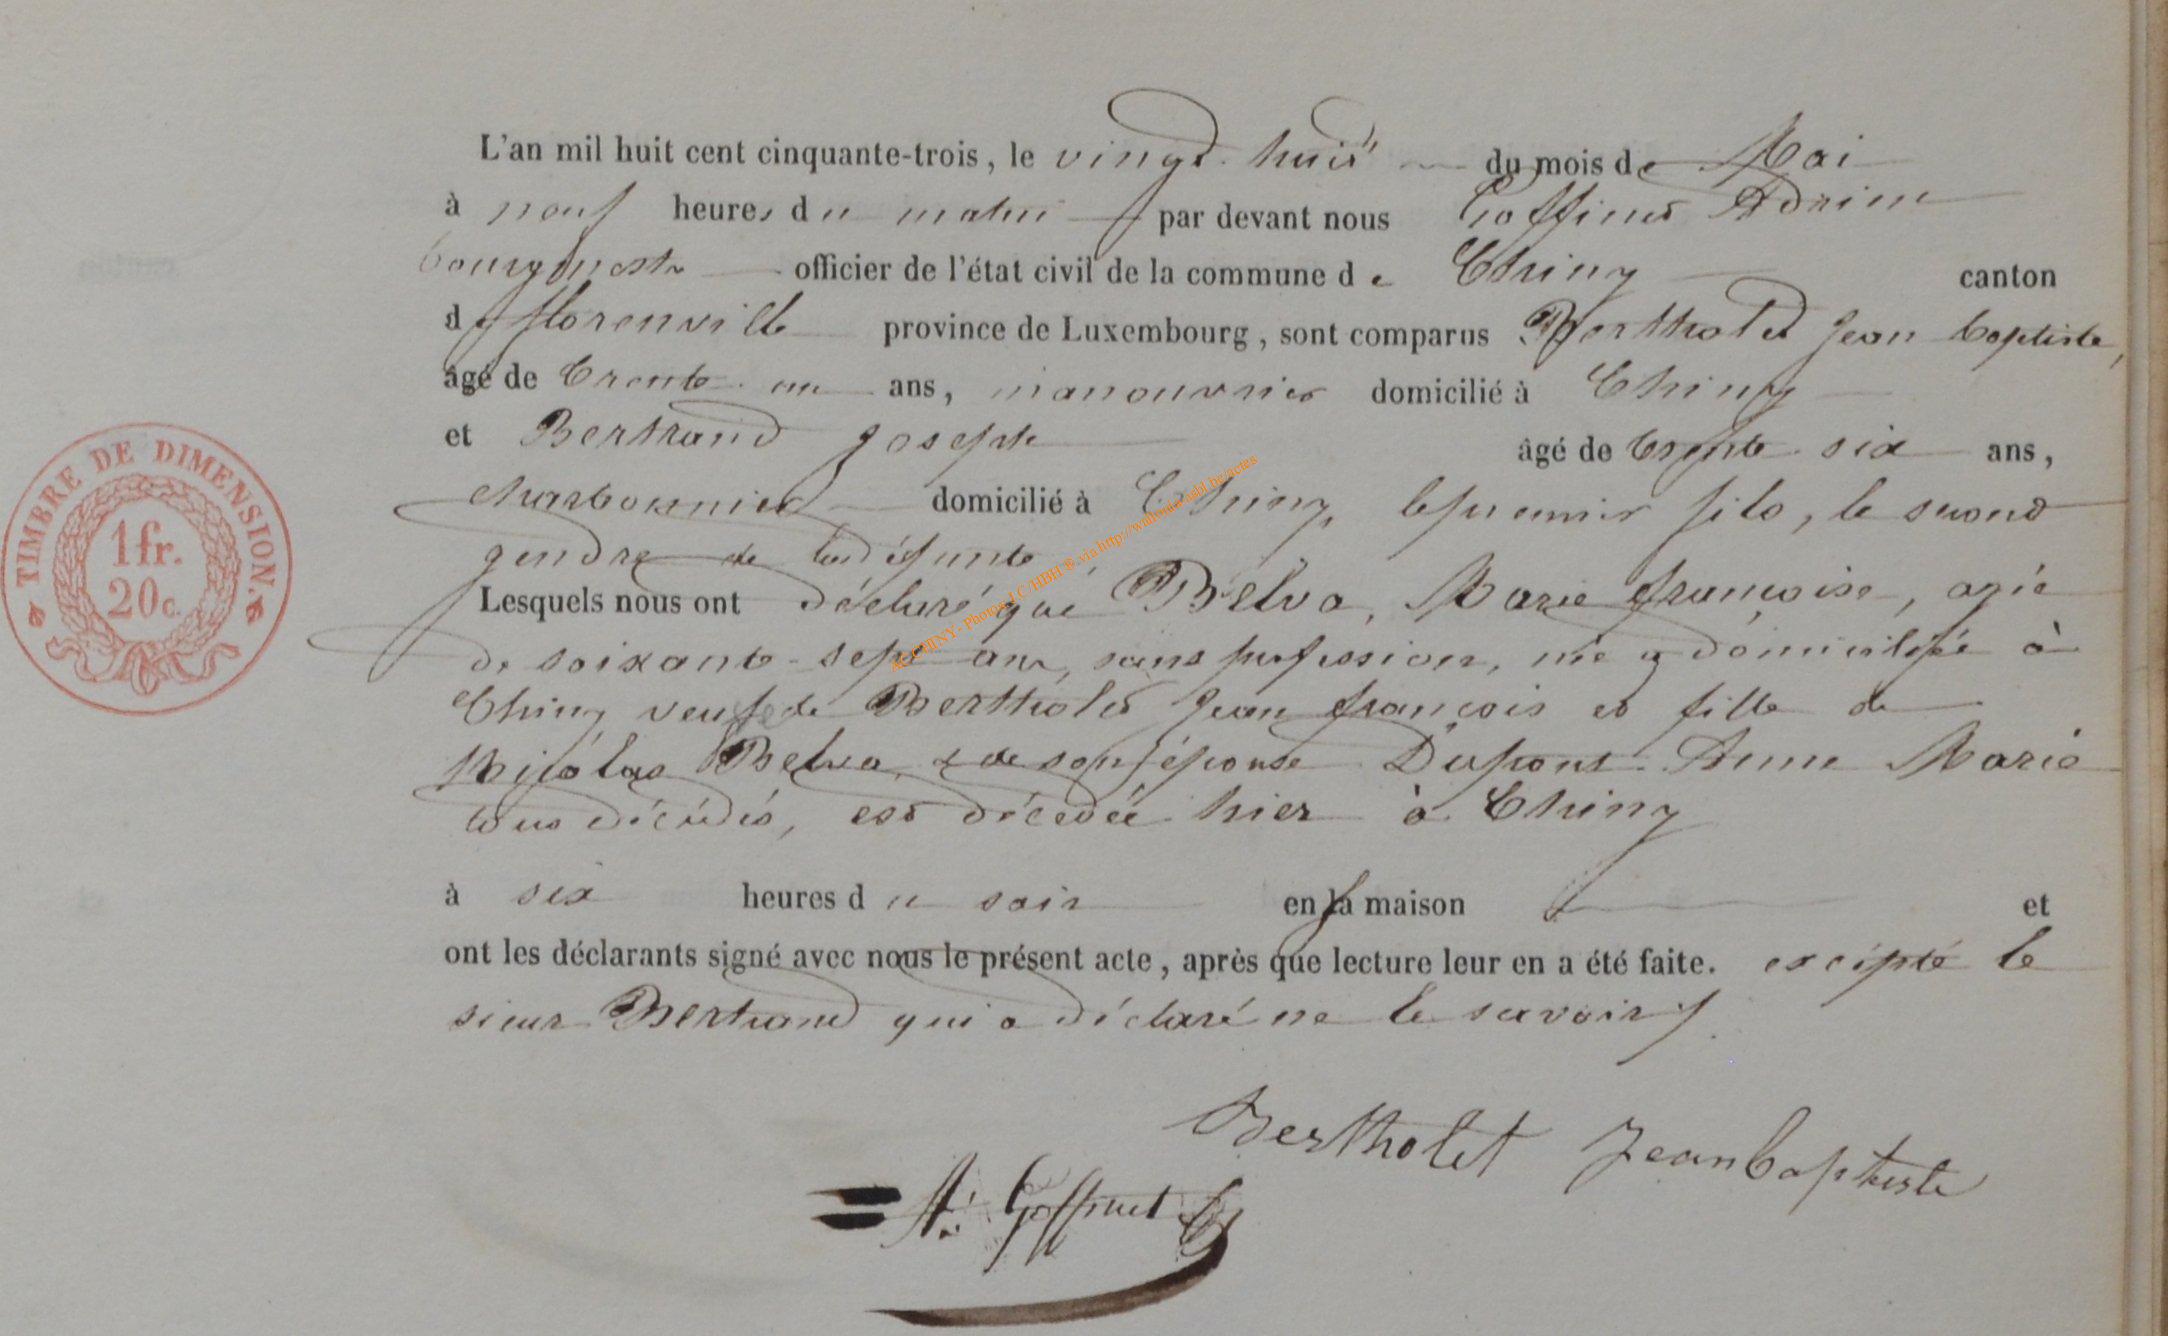 L'an mil huit cent cinquante-trois, le vingt huit du mois de Mai
à neuf heures du matin par devant nous Goffinet Adrien
bourgmestre officier de l'état civil de la commune de Chiny canton
de florenville province de Luxembourg, sont comparus Bertholet Jean baptiste,
âgé de trente un ans, manouvrier domicilié à Chiny
et Bertrand Joseph âgé de trente six ans,
charbonnier domicilié à Chiny, le premier fils, le second
gendre de la défunte
Lesquels nous ont déclaré que Belva, Marie françoise, agée
de soixante-sept ans, sans profession, née & domiciliée à
Chiny veuve de Bertholet Jean françois et fille de
Nicolas Belva & de son épouse Dupont Anne Marie
tous décédés, est décédée hier à Chiny
à six heures du soir en sa maison et
ont les déclarants signé avec nous le présent acte, après que lecture leur en a été faite. excepté le
sieur Bertrand qui a déclaré ne le savoir
Bertholet Jean baptiste
A. Goffinet
TIMBRE DE DIMENSION.
1fr.
20c.
AC CHINY - Photos J.C/HBH ® via http://wallonia-asbl.be/actes